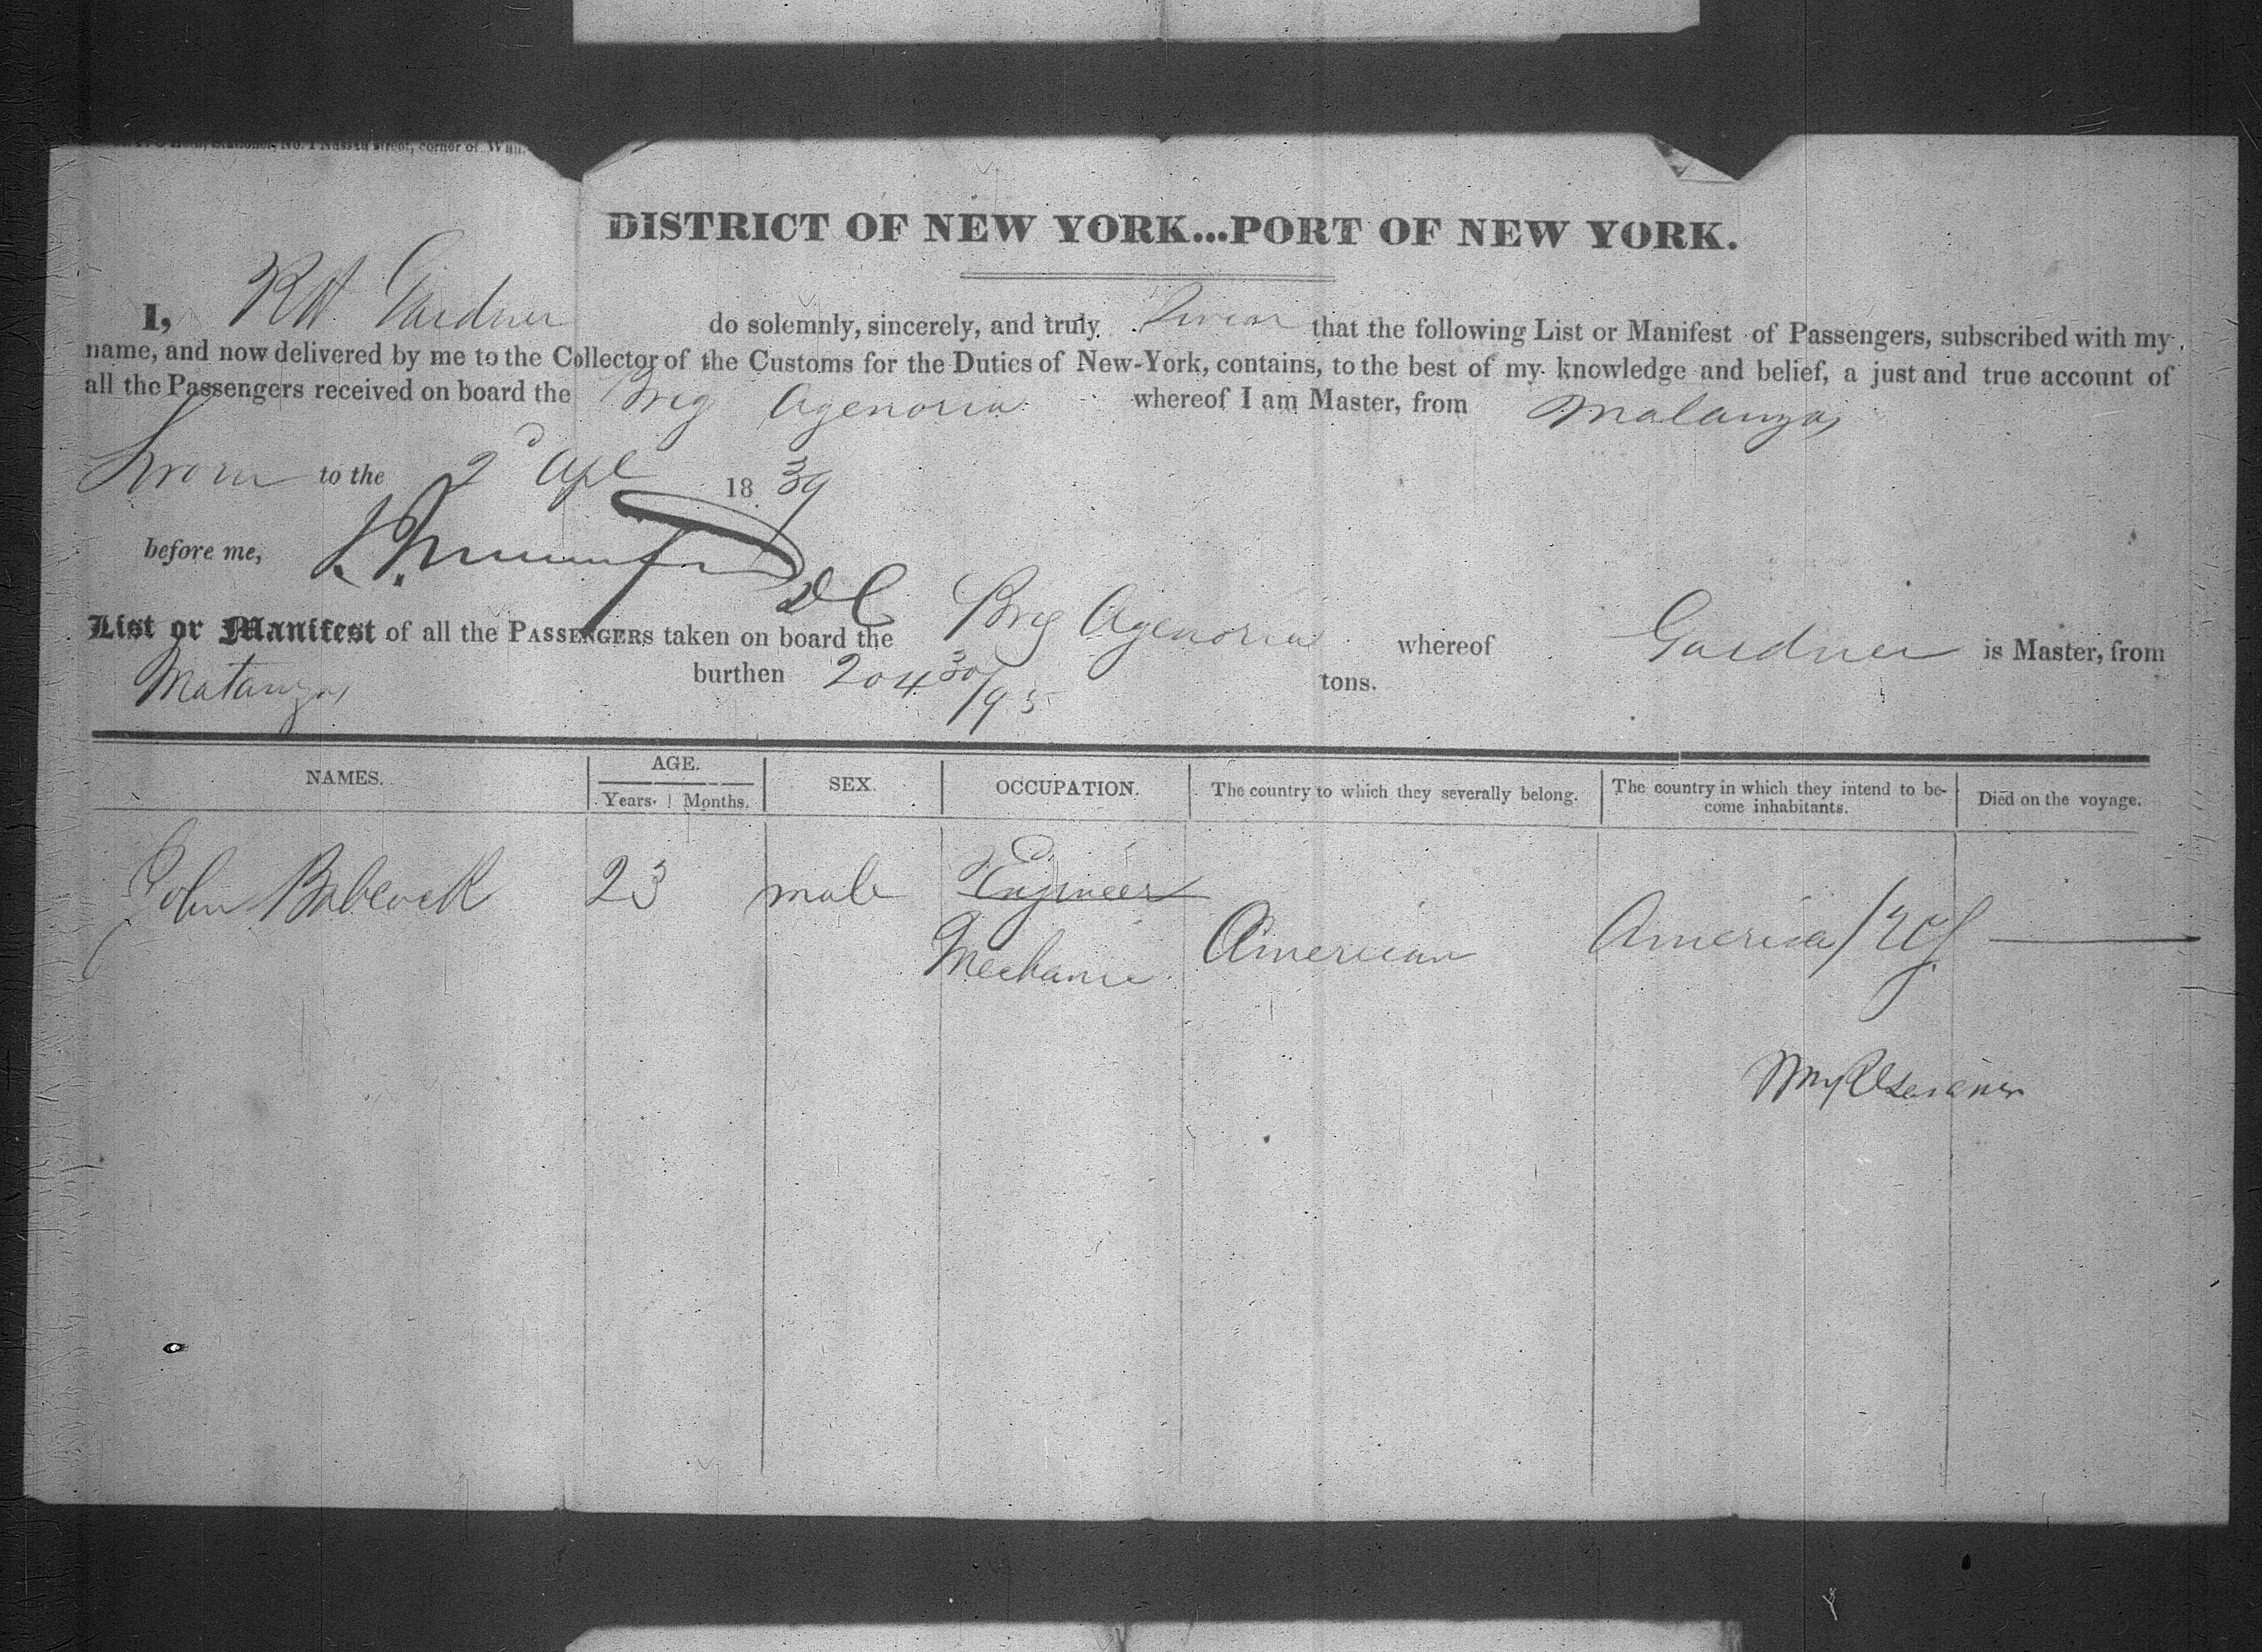 Stationer, No. 1 Nassau street, corner of Wall.
DISTRICT OF NEW YORK...PORT OF NEW YORK.
I, Gardner do solemnly, sincerely, and truly Swear that the following List or Manifest of Passengers, subscribed with my
name, and now delivered by me to the Collector of the Customs for the Duties of New-York, contains, to the best of my knowledge and belief, a just and true account of
all the Passengers received on board the Brig Agenoria whereof I am Master, from Matanzas
Sworn to the 2d Apl 1839
before me, DC
List or Manifest of all the PASSENGERS taken on board the Brig Agenoria whereof Gardner is Master, from
Matanzas burthen 204 30/95 tons.
NAMES. AGE. SEX. OCCUPATION. The country to which they severally belong. The country in which they intend to be- Died on the voyage.
Years. Months. come inhabitants.
John Babcock 23 male Engineer
Mechanic American America